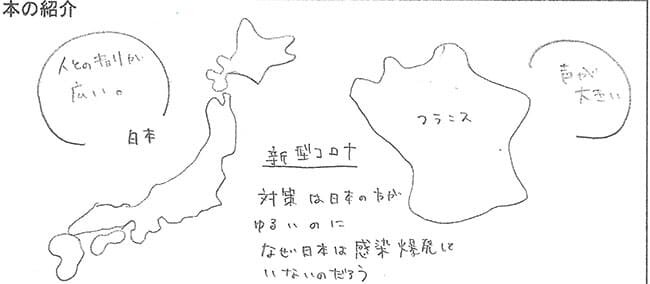 本の紹介
人との距離が
広い。
日本
フランス
声が
大きい
新型コロナ
対策は日本の方が
ゆるいのに
なぜ日本は感染爆発して
いないのだろう